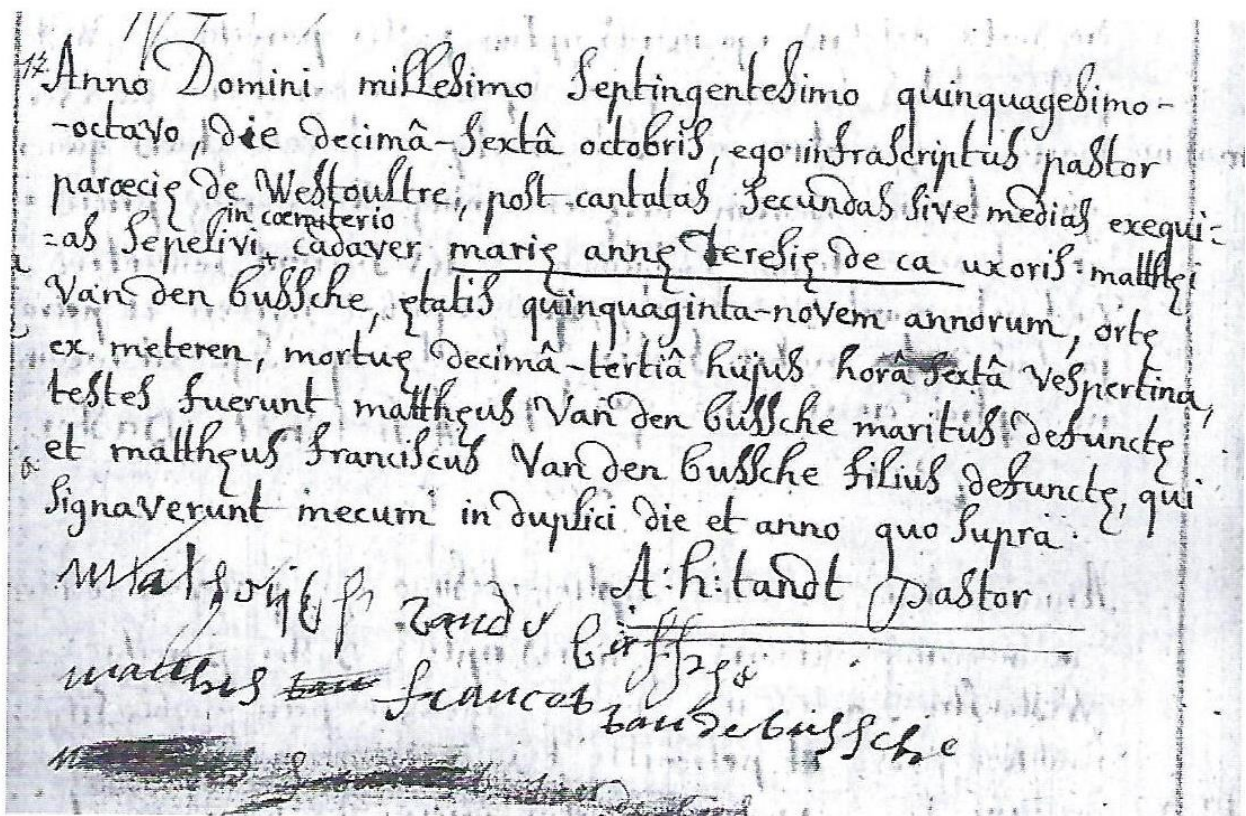 17 Anno Domini millesimo septingentesimo quinquagesimo-
-octavo, die decimâ-sextâ octobris, ego infrascriptus pastor
parœcię de Westoultre, post cantatas secundas sive medias exequi=
in cœmiterio
=as sepelivi + cadaver marię annę teresię de ca uxoris matthęi
Van den bussche, ętatis quinquaginta-novem annorum, ortę
ex meteren, mortuę decimâ-tertiâ hujus horâ sextâ vespertina,
testes fuerunt matthęus Van den bussche maritus defunctę
et matthęus franciscus Van den bussche filius defunctę, qui
signaverunt mecum in duplici die et anno quo supra.
A: h: tandt pastor
vande
bussche
matthes francos vandebussche